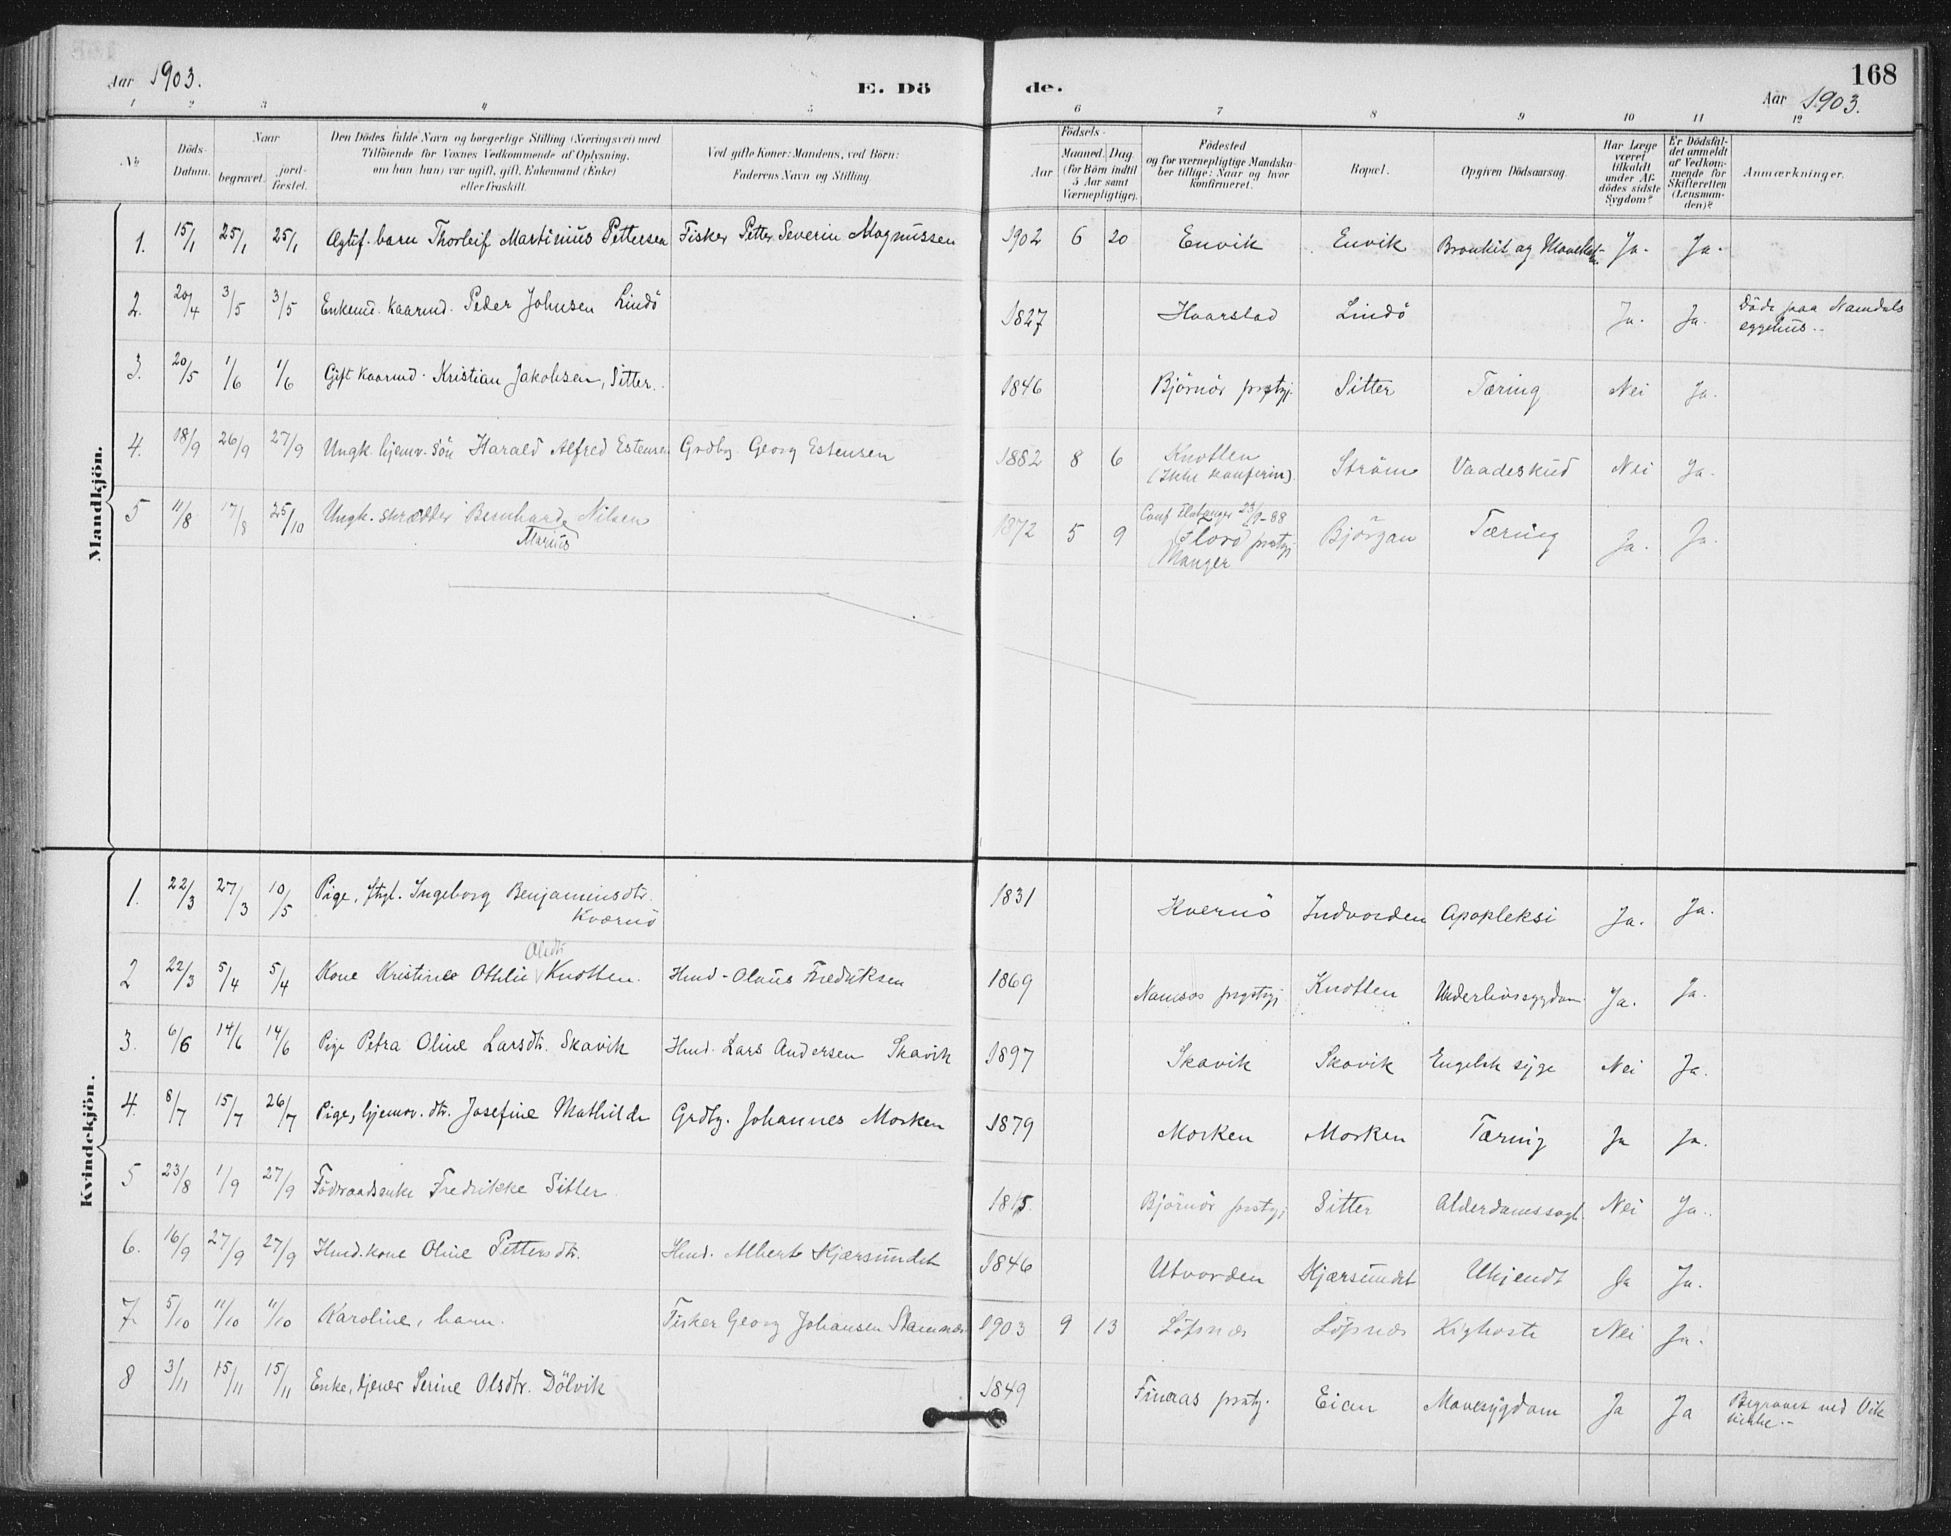 168
Aar 1903.
E. Dö de.
Aar 1903.
1 2 3 4 5 6 7 8 9 10 11 12
No
Döds-Datum.
Naar
begravet.
jord-fæstet.
Den Dödes fulde Navn og borgerlige Stilling (Næringsvei) med
Tilföiende for Voxnes Vedkommende af Oplysning,
om han (hun) var ugift, gift, Enkemand (Enke)
eller fraskilt.
Ved gifte Koner: Mandens, ved Börn:
Faderens Navn og Stilling.
Födsels-
Aar
Maaned. Dag.
(for Börn indtil
5 Aar samt
Værnepligtige).
Födested
og for værnepligtige Mandska-
ber tillige: Naar og hvor
konfirmeret.
Bopæl.
Opgiven Dödsaarsag.
Har Læge
været
tilkaldt
under Af-
dödes sidste
Sygdom?
Er Dödsfal-
det anmeldt
af Vedkom-
mende for
Skifteretten
(Lensman-
den)?
Anmærkninger.
Mandkjön.
1. 15/1 25/1 25/1 Ægtef. barn Thorleif Martinius Pettersen Fisker Petter Severin Magnussen 1902 6 20 Envik Envik Bronkit og Ja. Ja.
2. 20/4 3/5 3/5 Enkemd. kaarmd. Peder Johnsen Lindö 1827 Haarstad Lindö Ja. Ja. Döde paa Namdals
sygehus.
3. 20/5 1/6 1/6 Gift kaarmd. Kristian Jakobsen, Sitter. 1846 Björnör prstgj. Sitter Tæring Nei Ja.
4. 18/9 26/9 27/9 Ungk. hjemv. sön Harald Alfred Estensen Grdbg. Georg Estensen 1882 8 6 Knotten
(Ikke konfirm). Ström Vaadeskud Nei Ja.
5 11/8 17/8 25/10 Ungk. skrædder Bernhard Nilsen
Marius 1872 5 9 Conf 23/9-88
Florö prstgj
Manger Björgan Tæring Ja. Ja.
Kvindekjön.
1. 22/3 27/3 10/5 Pige, Ingeborg Benjaminsdtr.
Kvernö 1831 Kvernö Indvorden Apopleksi Ja. Ja.
2 22/3 5/4 5/4 Kone Kristine Othlie Olsdtr Knotten. Hmd. Olaus Fredriksen 1869 Namsos prgstgj Knotten Underlivssygdom Ja. Ja.
3. 6/6 14/6 14/6 Pige Petra Oline Larsdtr. Skavik Hmd. Lars Andersen Skavik 1897 Skavik Skavik Engelsk syge Nei Ja.
4. 8/7 15/7 26/7 Pige, hjemv. dtr. Josefine Mathilde Grdbg. Johannes Morken 1879 Morken Morken Tæring Ja Ja.
5 23/8 1/9 27/9 Föderaadsenke Fredrikke Sitter. 1815. Björnör prstgj. Sitter Alderdomssvagh. Nei Ja.
6. 16/9 27/9 27/9 Hmd. kone Oline Pettersdtr. Hmd. Albert Kjærsundet 1846 Utvorden Kjærsundet Ukjendt Ja Ja.
7. 5/10 11/10 11/10 Karoline, barn. Fisker Georg Johansen Stamnes 1903 9 13 Löfsnes Löfsnes Kighoste Nei Ja.
8 3/11 15/11 15/11 Enke, tjener Serine Olsdtr. Dölvik 1849 Finaas prstgj. Eian Mavesygdom Ja Ja Begravet ved Vik
kirke.